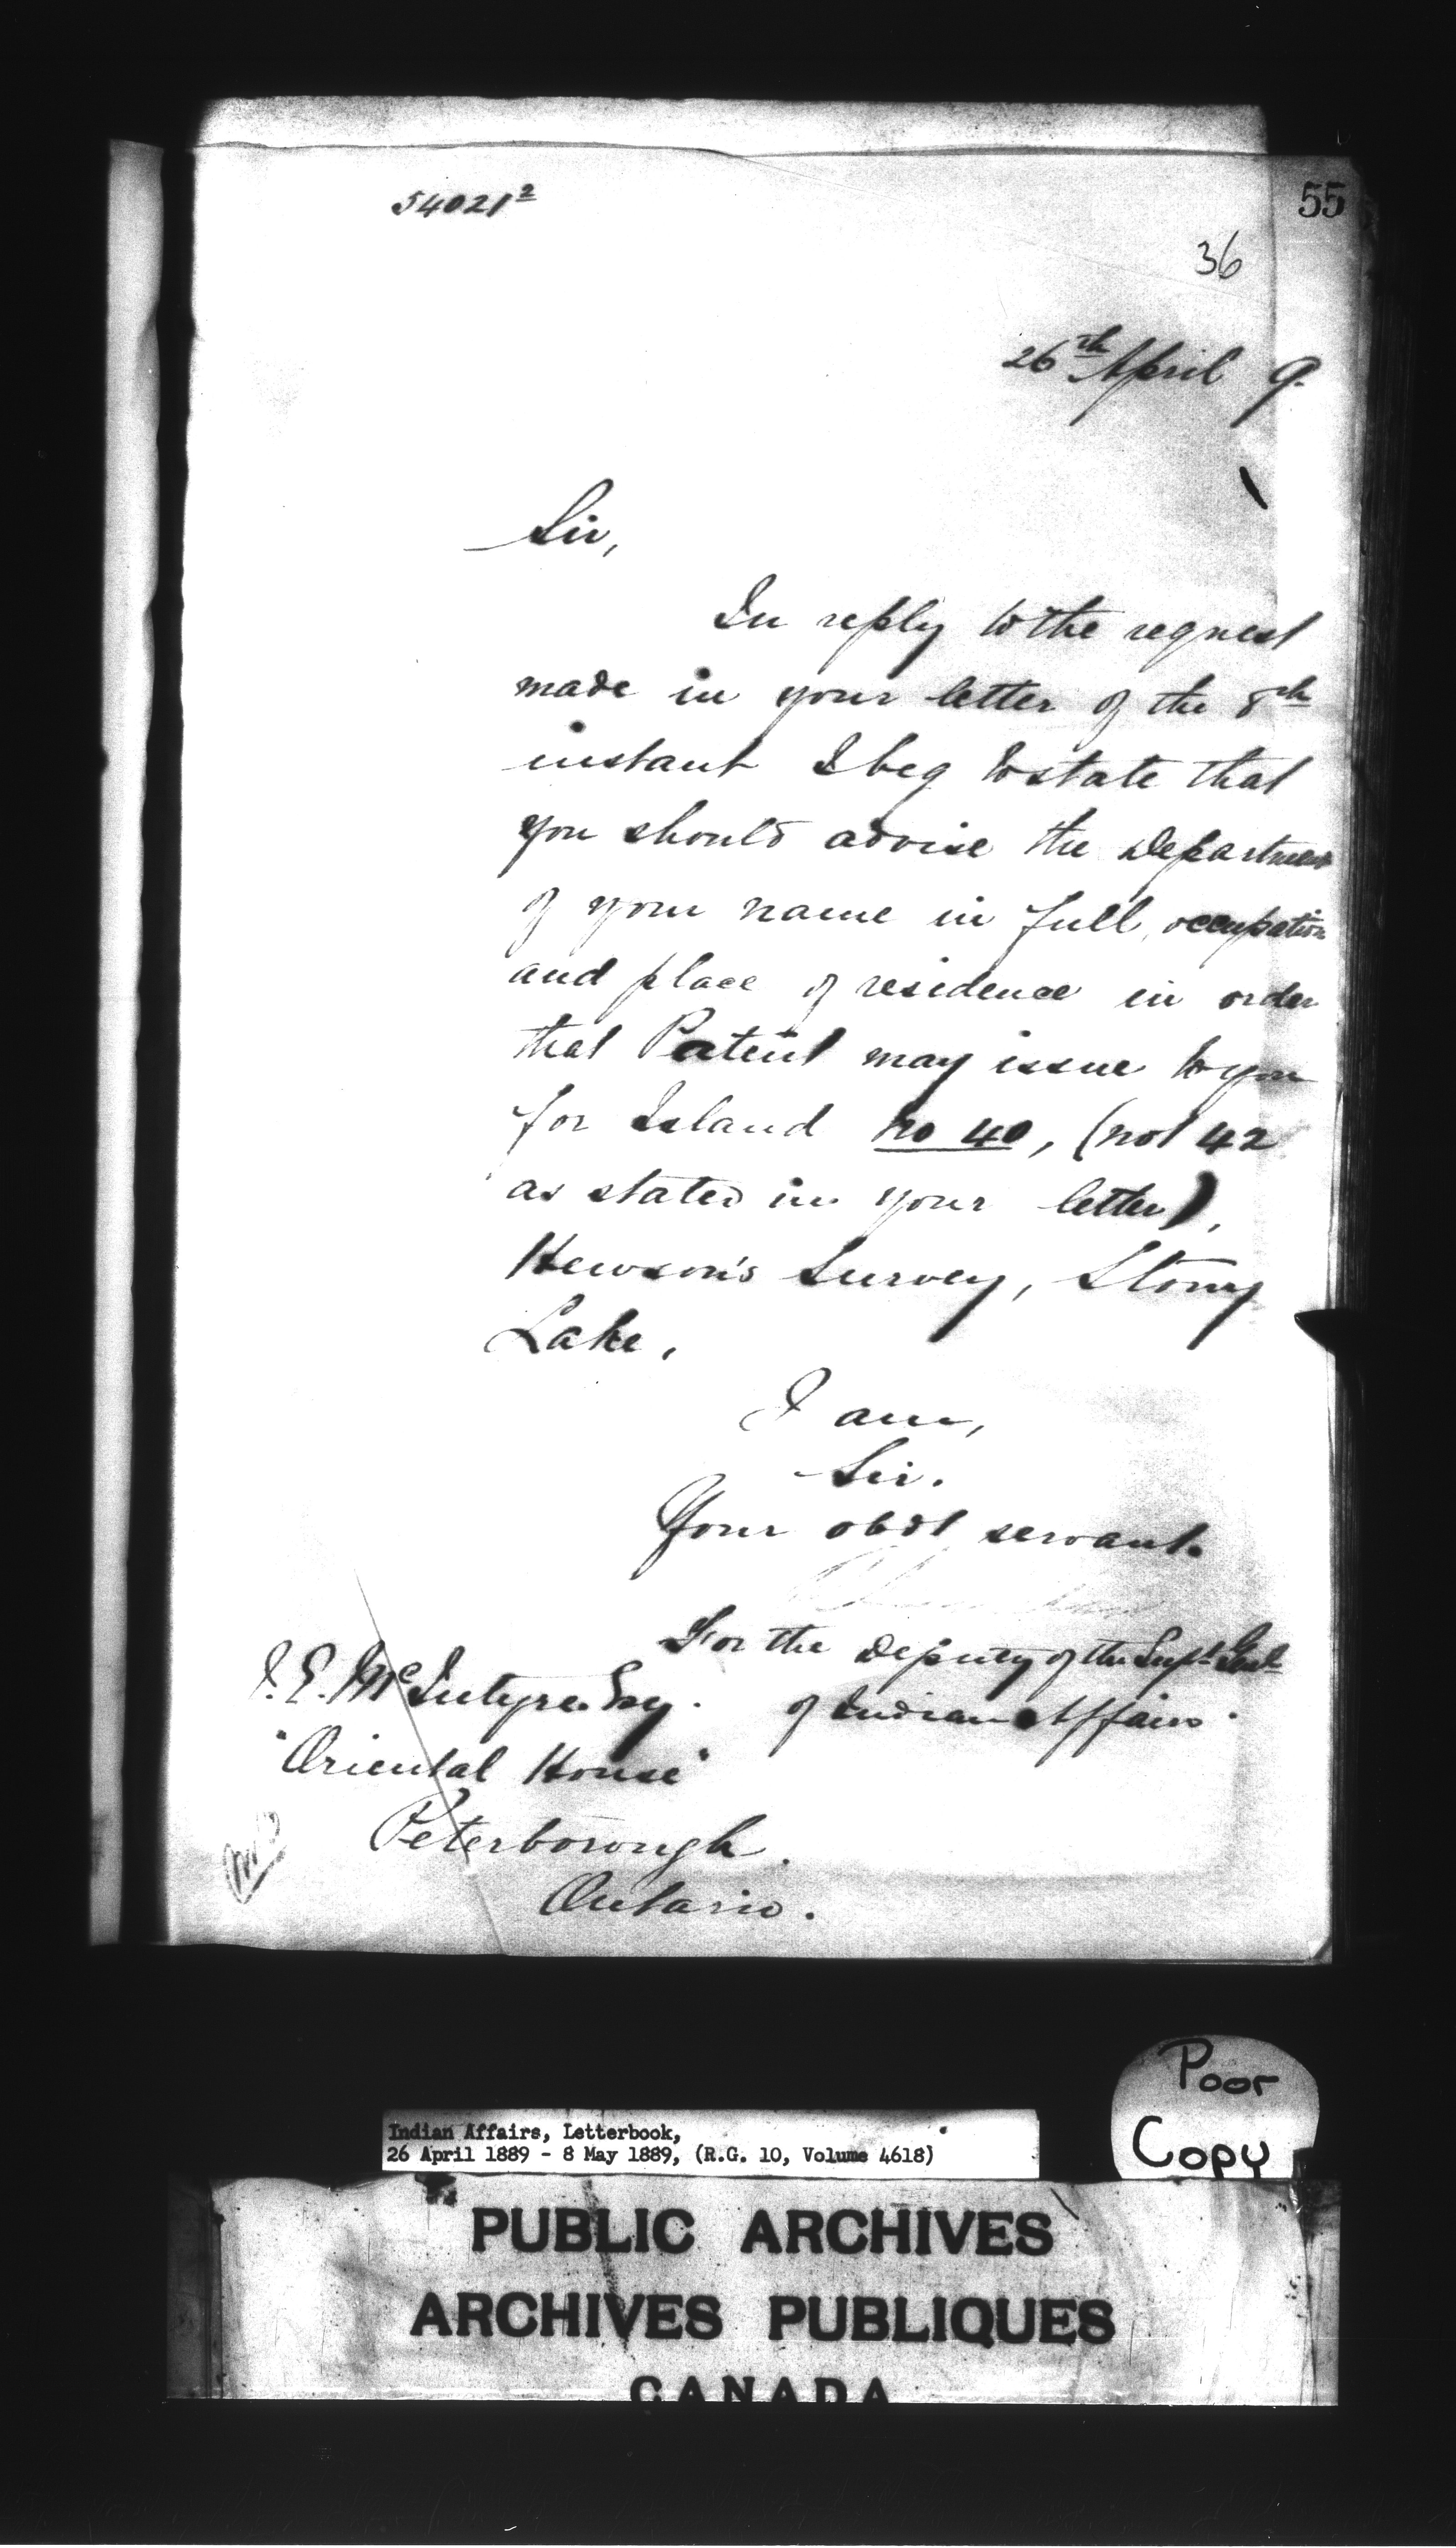 54021²
55
36
26th April 9.
Sir,
In reply to the request
made in your letter of the 8th
instant I beg to state that
you should advise the Department
of your name in full, occupation
and place of residence in order
that Patent may issue to you
for Island No 40, (not 42
as stated in your letter),
Hewson's Survey, Stony
Lake,
I am,
Sir.
Your obdt servant.
For the Deputy of the Supt Genl
of Indian Affairs.
McIntyre Esq.
"Oriental House"
Peterborough.
Ontario.
Poor
Copy
Indian Affairs, Letterbook,
26 April 1889 - 8 May 1889, (R.G. 10, Volume 4618)
PUBLIC ARCHIVES
ARCHIVES PUBLIQUES
CANADA